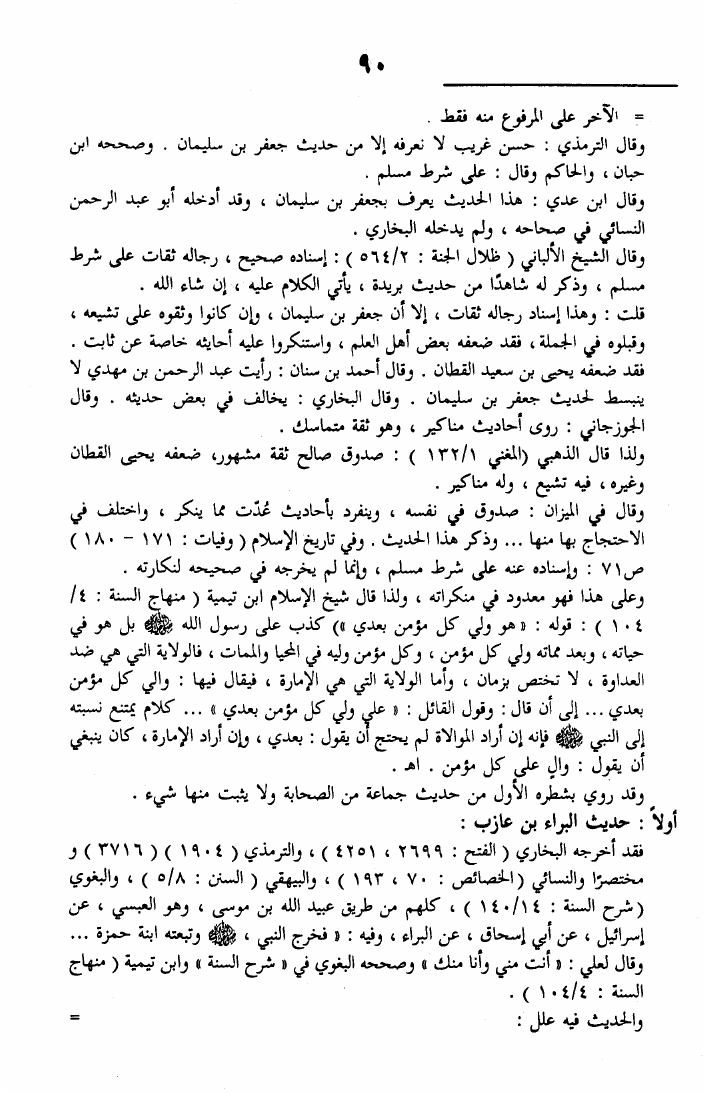 ٩٠
= الآخر على المرفوع منه فقط .
وقال الترمذي : حسن غريب لا نعرفه إلا من حديث جعفر بن سليمان . وصححه ابن
حبان ، والحاكم وقال : على شرط مسلم .
وقال ابن عدي : هذا الحديث يعرف بجعفر بن سليمان ، وقد أدخله أبو عبد الرحمن
النسائي في صحاحه ، ولم يدخله البخاري .
وقال الشيخ الألباني ( ظلال الجنة : ٥٦٤/٢ ) : إسناده صحيح ، رجاله ثقات على شرط
مسلم ، وذكر له شاهدًا من حديث بريدة ، يأتي الكلام عليه ، إن شاء الله .
قلت : وهذا إسناد رجاله ثقات ، إلا أن جعفر بن سليمان ، وإن كانوا وثقوه على تشيعه ،
وقبلوه في الجملة ، فقد ضعفه بعض أهل العلم ، واستنكروا عليه أحايثه خاصة عن ثابت .
فقد ضعفه يحيى بن سعيد القطان . وقال أحمد بن سنان : رأيت عبد الرحمن بن مهدي لا
ينبسط لحديث جعفر بن سليمان . وقال البخاري : يخالف في بعض حديثه . وقال
الجوزجاني : روى أحاديث مناكير ، وهو ثقة متماسك .
ولذا قال الذهبي (المغني ١٣٢/١ ) : صدوق صالح ثقة مشهور، ضعفه يحيى القطان
وغيره ، فيه تشيع ، وله مناكير .
وقال في الميزان : صدوق في نفسه ، وينفرد بأحاديث عُدّت مما ينكر ، واختلف في
الاحتجاج بها منها ... وذكر هذا الحديث . وفي تاريخ الإسلام ( وفيات : ١٧١ - ١٨٠ )
ص٧١ : وإسناده عنه على شرط مسلم ، وإنما لم يخرجه في صحيحه لنكارته .
وعلى هذا فهو معدود في منكراته ، ولذا قال شيخ الإسلام ابن تيمية ( منهاج السنة : ٤/
١٠٤ ) : قوله : « هو ولي كل مؤمن بعدي ») كذب على رسول الله ﷺ بل هو في
حياته ، وبعد مماته ولي كل مؤمن ، وكل مؤمن وليه في المحيا والممات ، فالولاية التي هي ضد
العداوة ، لا تختص بزمان ، وأما الولاية التي هي الإمارة ، فيقال فيها : والي كل مؤمن
بعدي ... إلى أن قال : وقول القائل : « علي ولي كل مؤمن بعدي » ... كلام يمتنع نسبته
إلى النبي ﷺ فإنه إن أراد الموالاة لم يحتج أن يقول : بعدي ، وإن أراد الإمارة ، كان ينبغي
أن يقول : والٍ على كل مؤمن . اهـ .
وقد روي بشطره الأول من حديث جماعة من الصحابة ولا يثبت منها شيء .
أولاً : حديث البراء بن عازب :
فقد أخرجه البخاري ( الفتح : ٢٦٩٩ ، ٤٢٥١ ) ، والترمذي ( ١٩٠٤ ) ( ٣٧١٦ ) و
مختصرًا والنسائي (الخصائص : ٧٠ ، ١٩٣ ) ، والبيهقي ( السنن : ٥/٨ ) ، والبغوي
(شرح السنة : ١٤٠/١٤ ) ، كلهم من طريق عبيد الله بن موسى ، وهو العبسي ، عن
إسرائيل ، عن أبي إسحاق ، عن البراء ، وفيه : « فخرج النبي ، ﷺ وتبعته ابنة حمزة ...
وقال لعلي : « أنت مني وأنا منك » وصححه البغوي في « شرح السنة » وابن تيمية ( منهاج
السنة : ١٠٤/٤ ) .
والحديث فيه علل : =